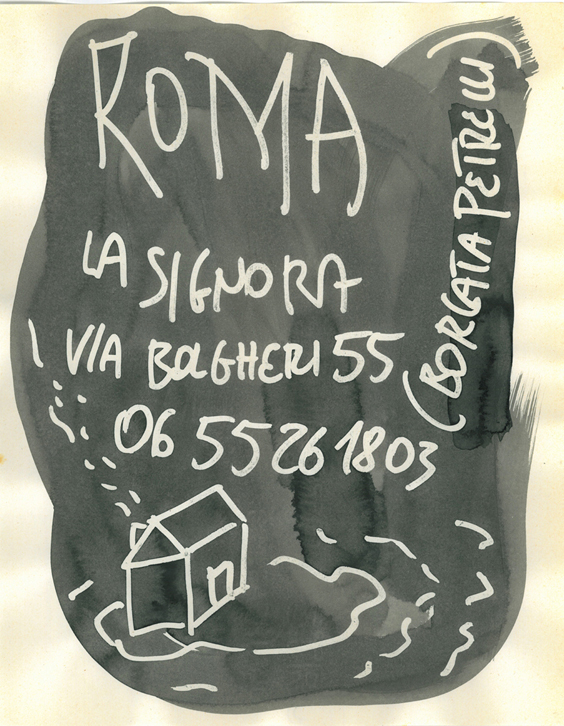 ROMA
LA SIGNORA
VIA BOLGHERI 55
06 55261803
(BORGATA PETRELLI)